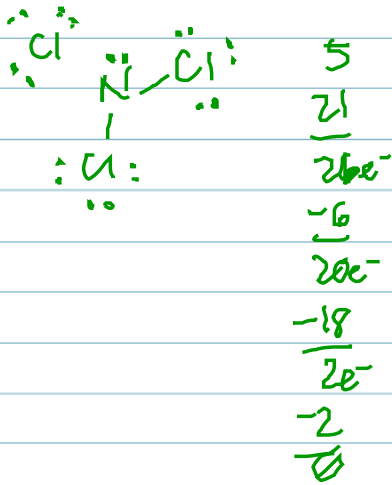 Cl
N Cl
Cl
5
21
26e⁻
-6
20e⁻
-18
2e⁻
-2
0